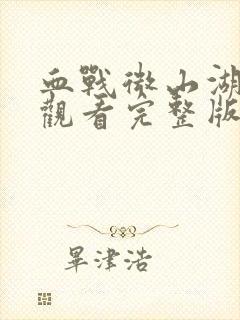 血戰微山湖
觀看完整版
畢津浩